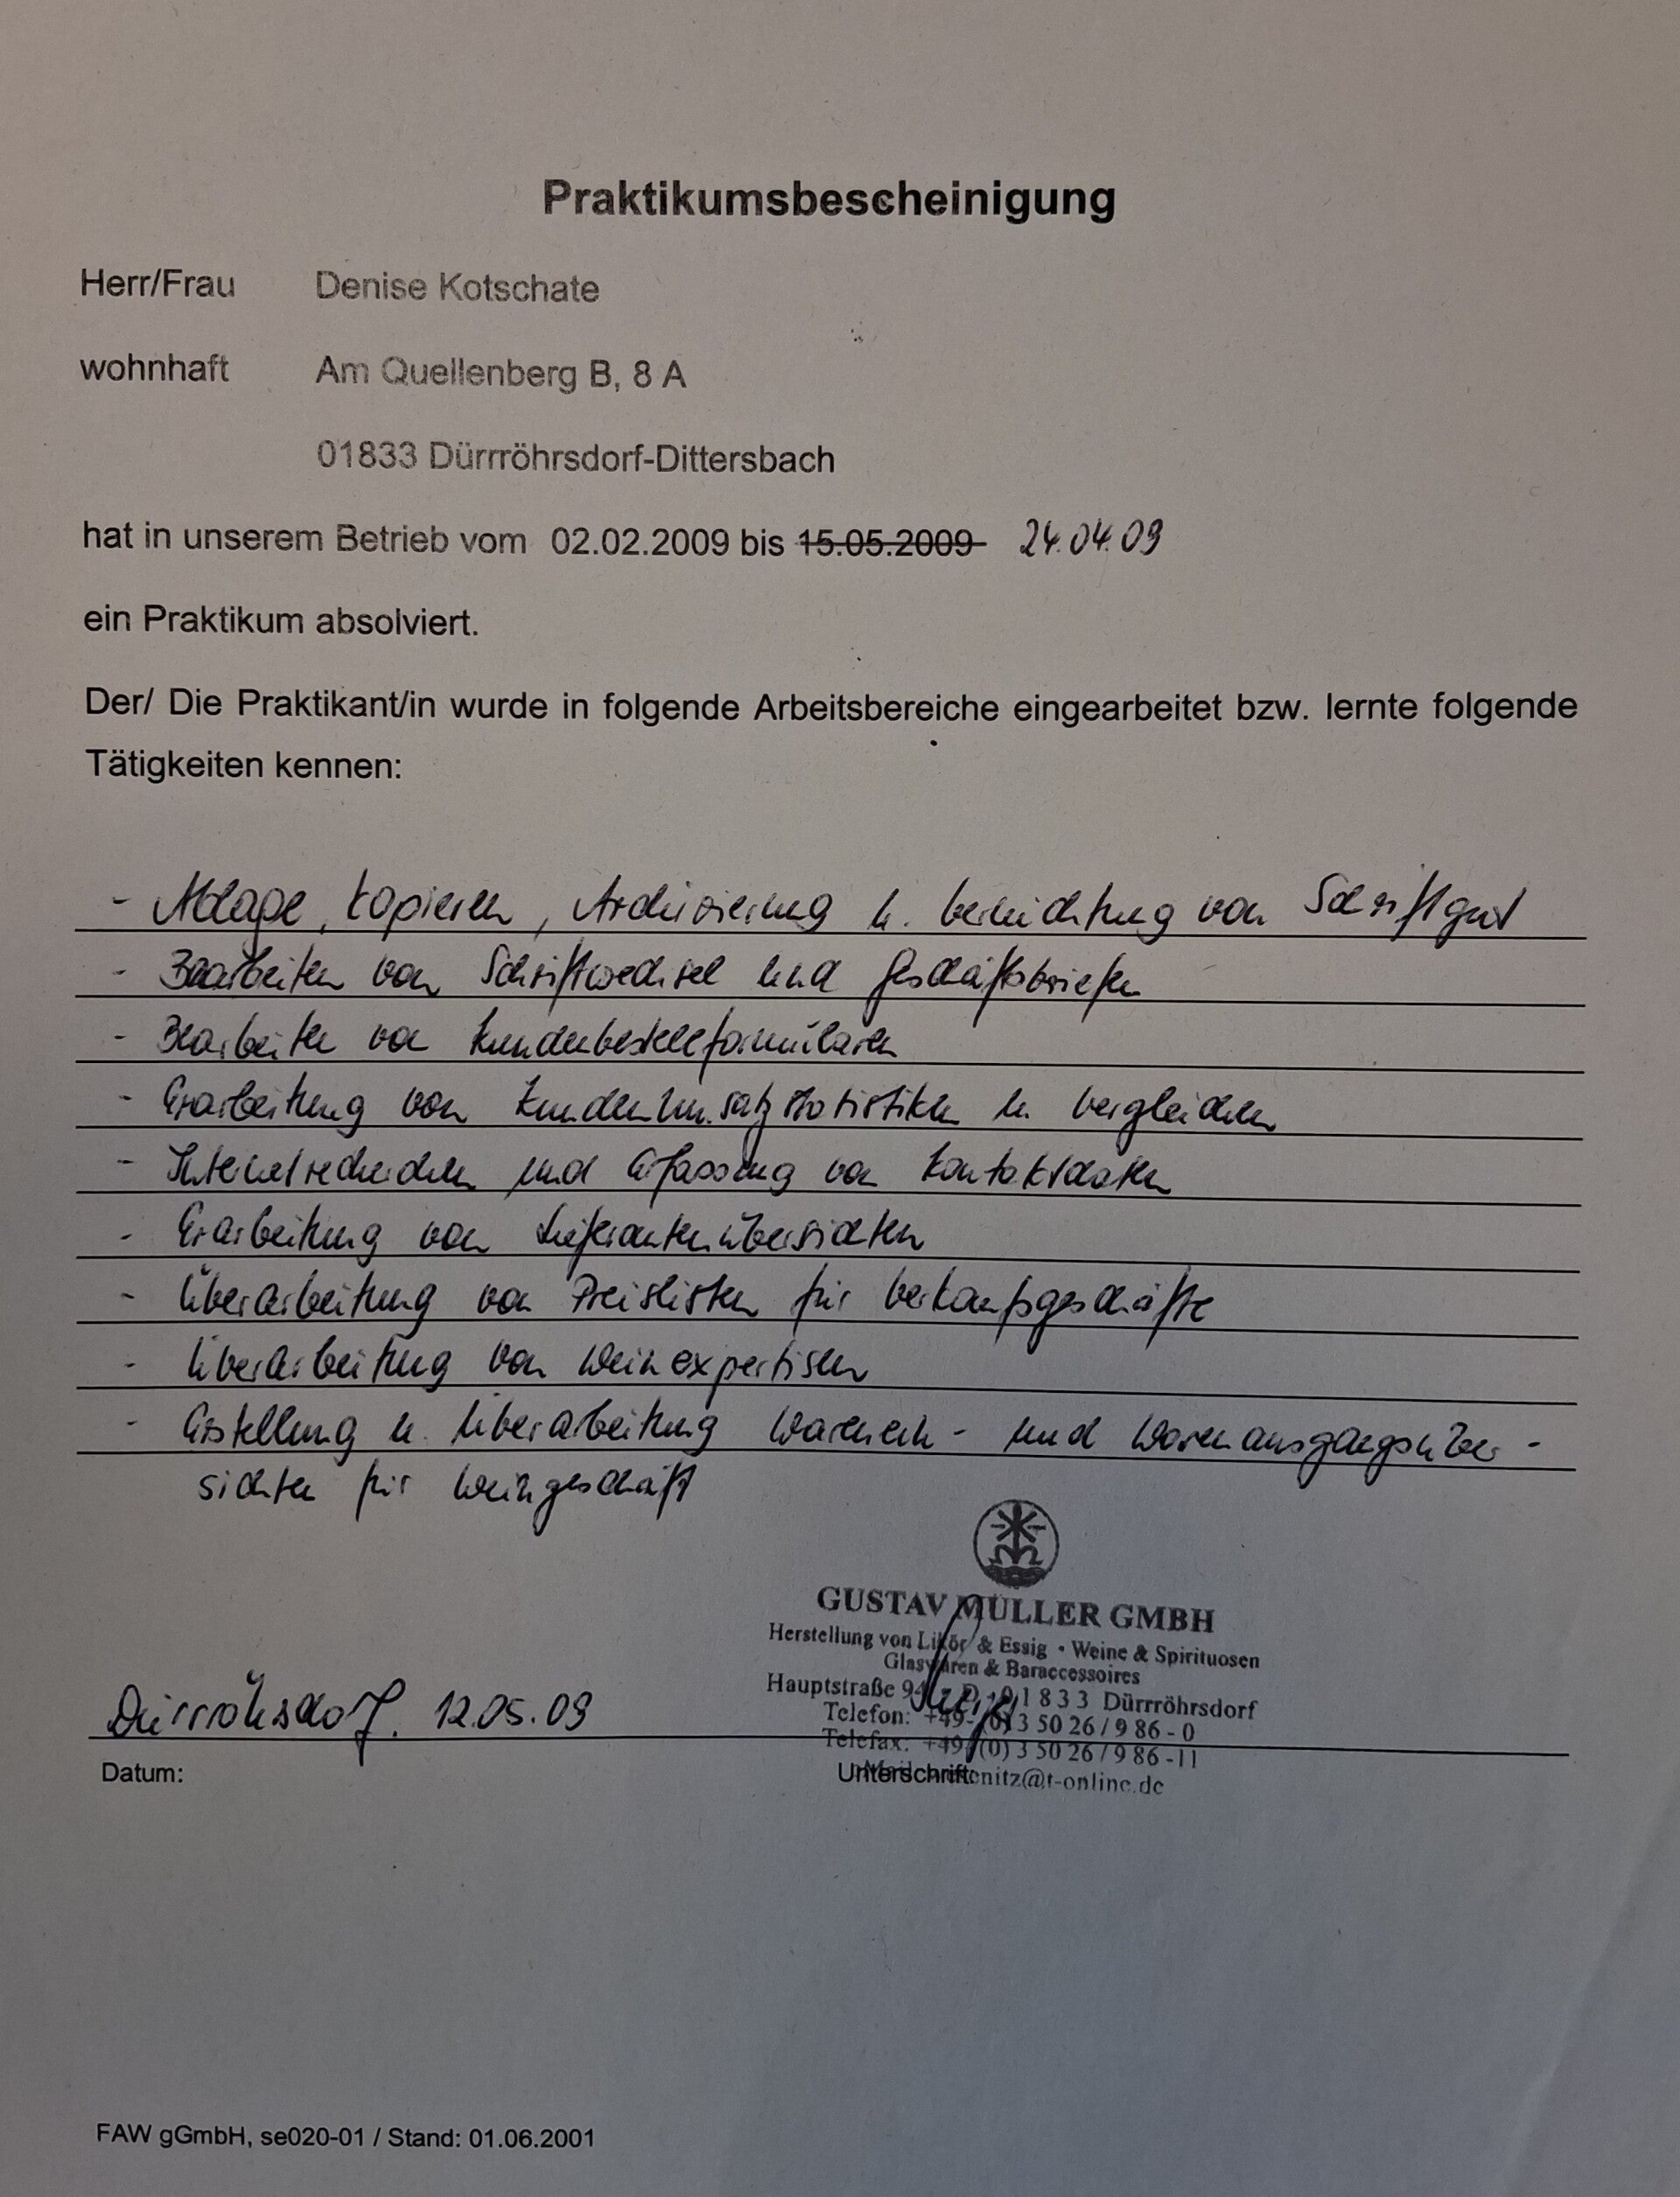 Praktikumsbescheinigung
Herr/Frau Denise Kotschate
wohnhaft Am Quellenberg B, 8 A
01833 Dürrröhrsdorf-Dittersbach
hat in unserem Betrieb vom 02.02.2009 bis 15.05.2009 24.04.09
ein Praktikum absolviert.
Der/ Die Praktikant/in wurde in folgende Arbeitsbereiche eingearbeitet bzw. lernte folgende
Tätigkeiten kennen:
- Ablage, kopieren, Archivierung u. Vernichtung von Schriftgut
- Bearbeiten von Schriftwechsel und Geschäftsbriefen
- Bearbeiten von Kundenbestellformularen
- Erarbeitung von Kundenumsatzstatistiken u. Vergleichen
- Internetrecherchen und Erfassung von Kontaktdaten
- Erarbeitung von Lieferantenübersichten
- Überarbeitung von Preislisten für Verkaufsgeschäfte
- Überarbeitung von Weinexpertisen
- Erstellung u. Überarbeitung Warenein- und Warenausgangsüber-
sichten für Weingeschäft
GUSTAV MÜLLER GMBH
Herstellung von Likör & Essig • Weine & Spirituosen
Glaswaren & Baraccessoires
Hauptstraße 94 D-01833 Dürrröhrsdorf
Telefon: +49-(0) 3 50 26 / 9 86 - 0
Telefax: +49-(0) 3 50 26 / 9 86 -11
Dürrröhrsdorf, 12.05.09
Datum: Unterschrift:
FAW gGmbH, se020-01 / Stand: 01.06.2001